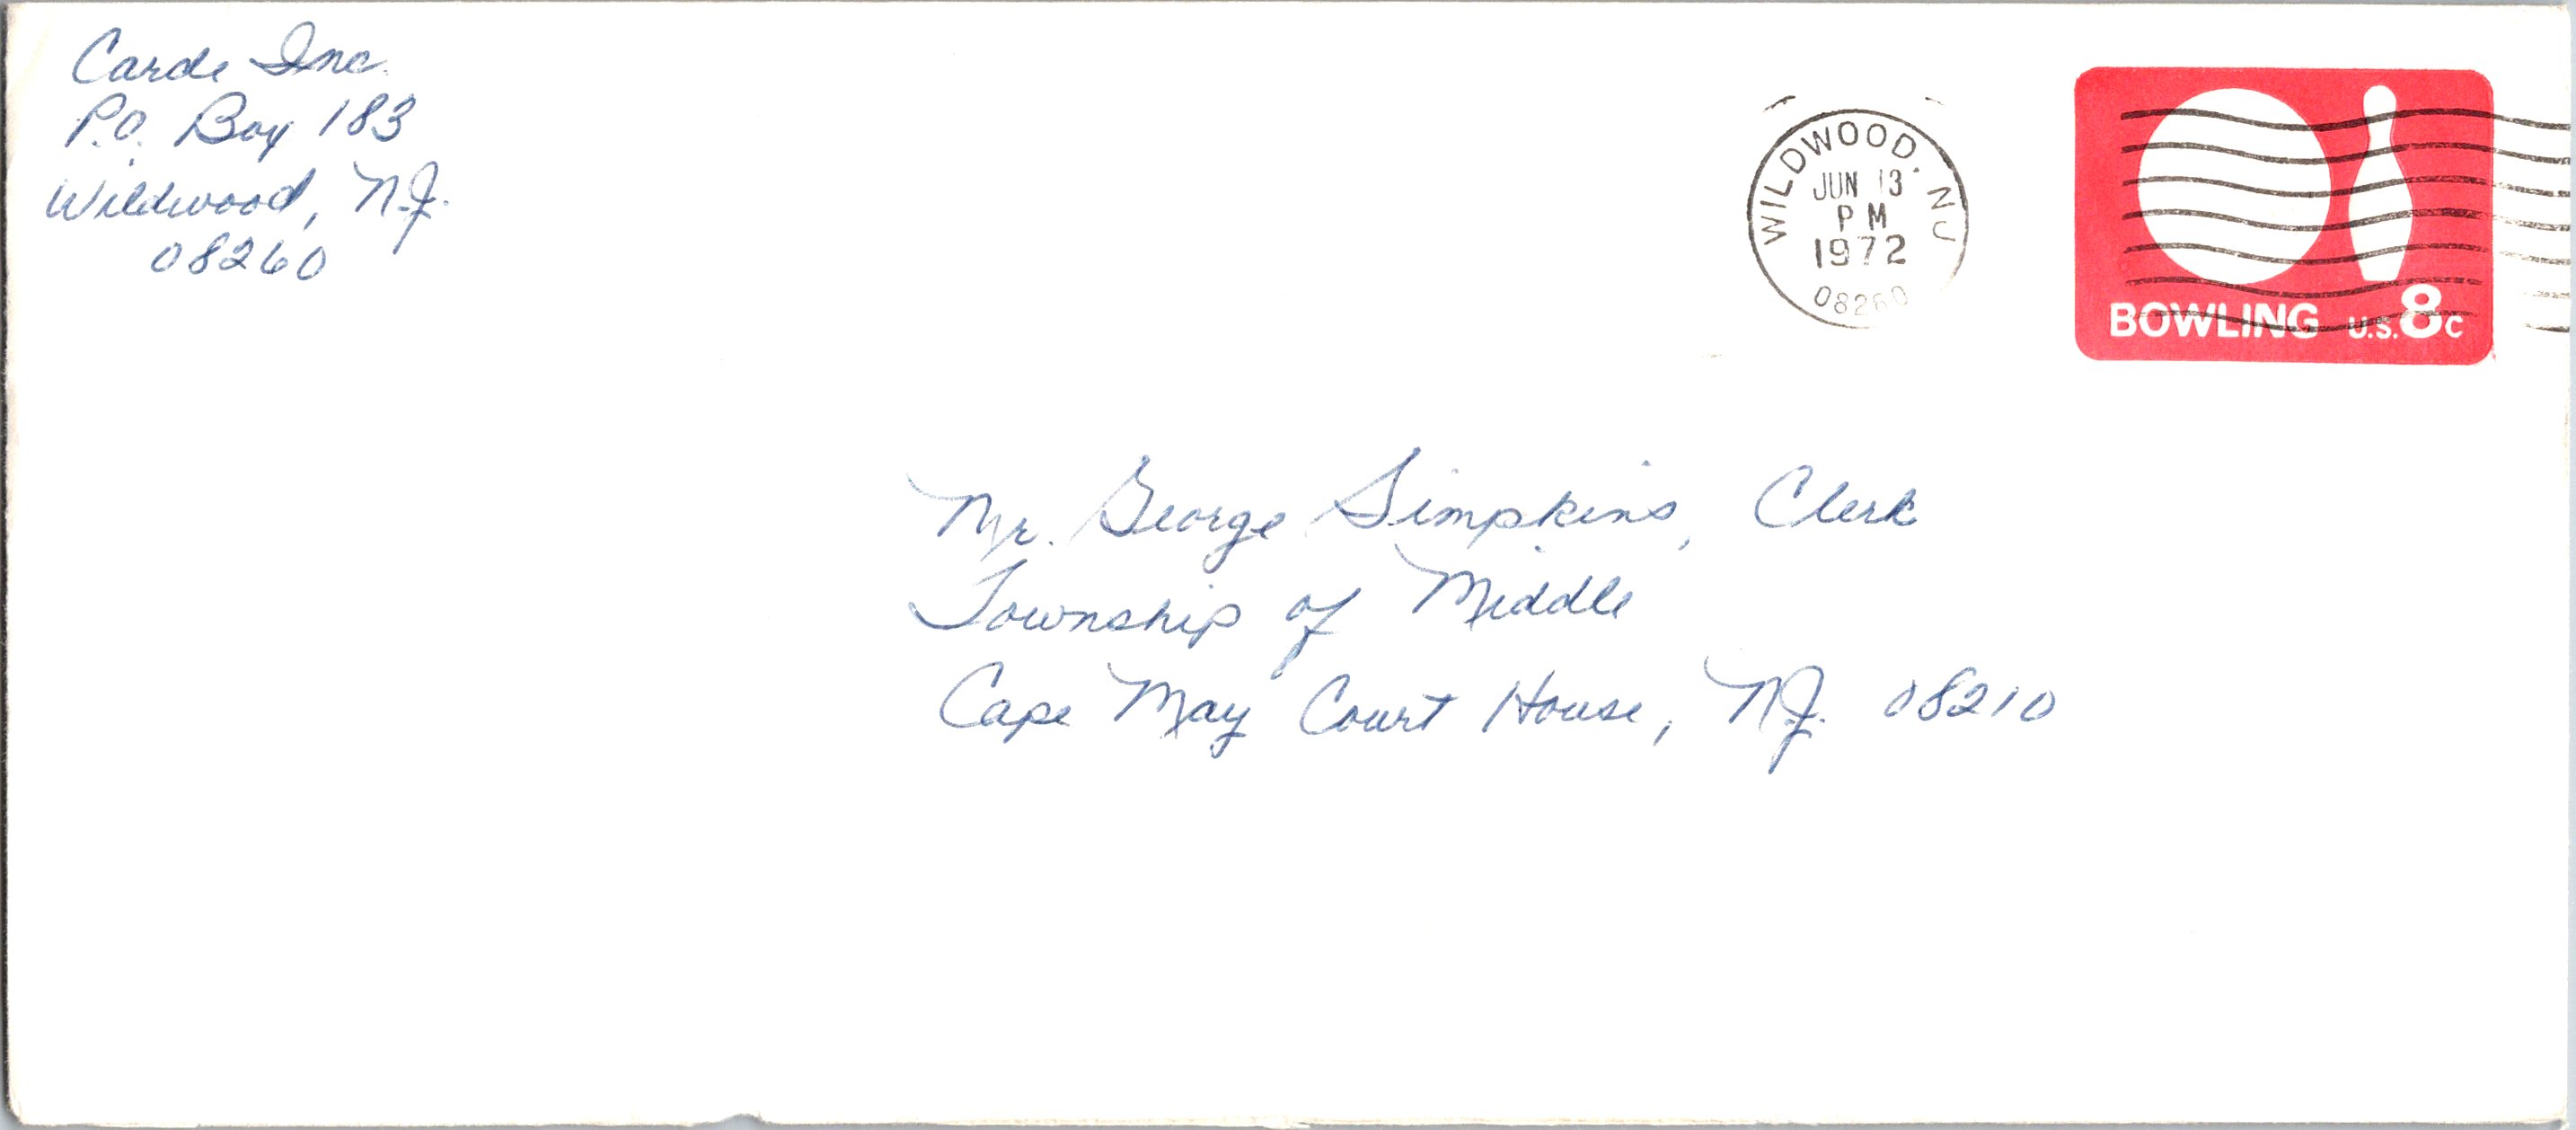 Carde Inc.
P.O. Box 183
Wildwood, N.J.
08260
WILDWOOD, NJ
JUN 13
PM
1972
08260
BOWLING U.S. 8c
Mr. George Simpkins, Clerk
Township of Middle
Cape May Court House, N.J. 08210